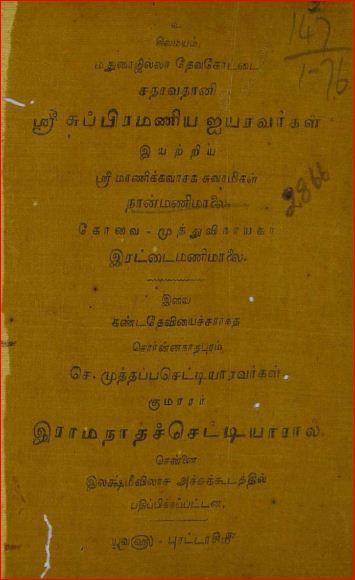 உ
சிவமயம்.
மதுரைஜில்லா தேவகோட்டை
சதாவதானி
ஸ்ரீ சுப்பிரமணிய ஐயரவர்கள்
இயற்றிய
ஸ்ரீ மாணிக்கவாசக சுவாமிகள்
நான்மணிமாலை.
கோவை - முத்துவிநாயகர்
இரட்டைமணிமாலை.
இவை
கண்டதேவியைச்சார்ந்த
சொர்ன்னநாதபுரம்
செ. முத்தப்பசெட்டியாரவர்கள்
குமாரர்
இராமநாதச்செட்டியாரால்
சென்னை
இலக்ஷ்மீவிலாச அச்சுக்கூடத்தில்
பதிப்பிக்கப்பட்டன.
யுவ௵ - புரட்டாசி௴
147
1-76
2866